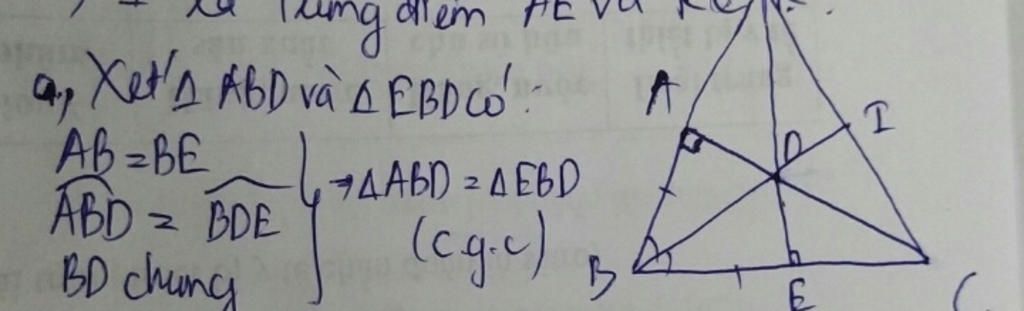 trung điểm AE và
a,, Xét Δ ABD và Δ EBD có:
AB = BE
ABD = BDE
BD chung
→ ΔABD = ΔEBD
(c.g.c)
A
I
D
B
E
C